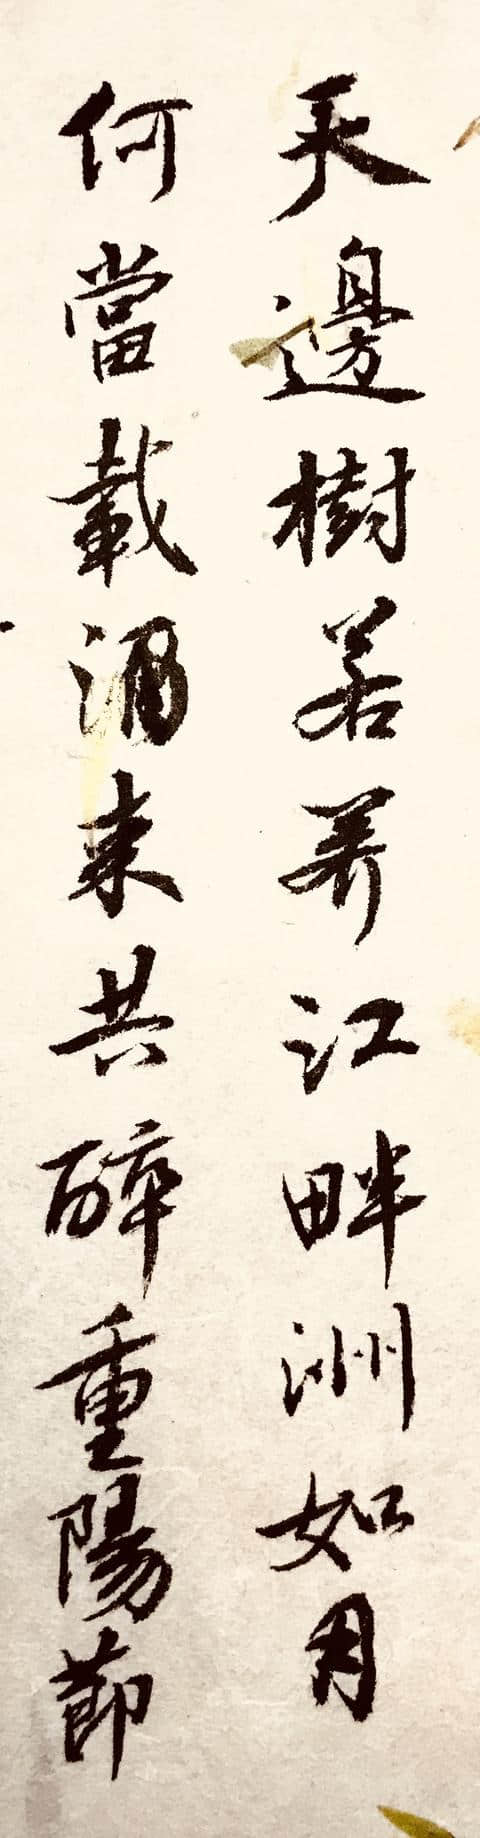 天邊樹若荠江畔洲如月
何當載酒来共醉重陽節